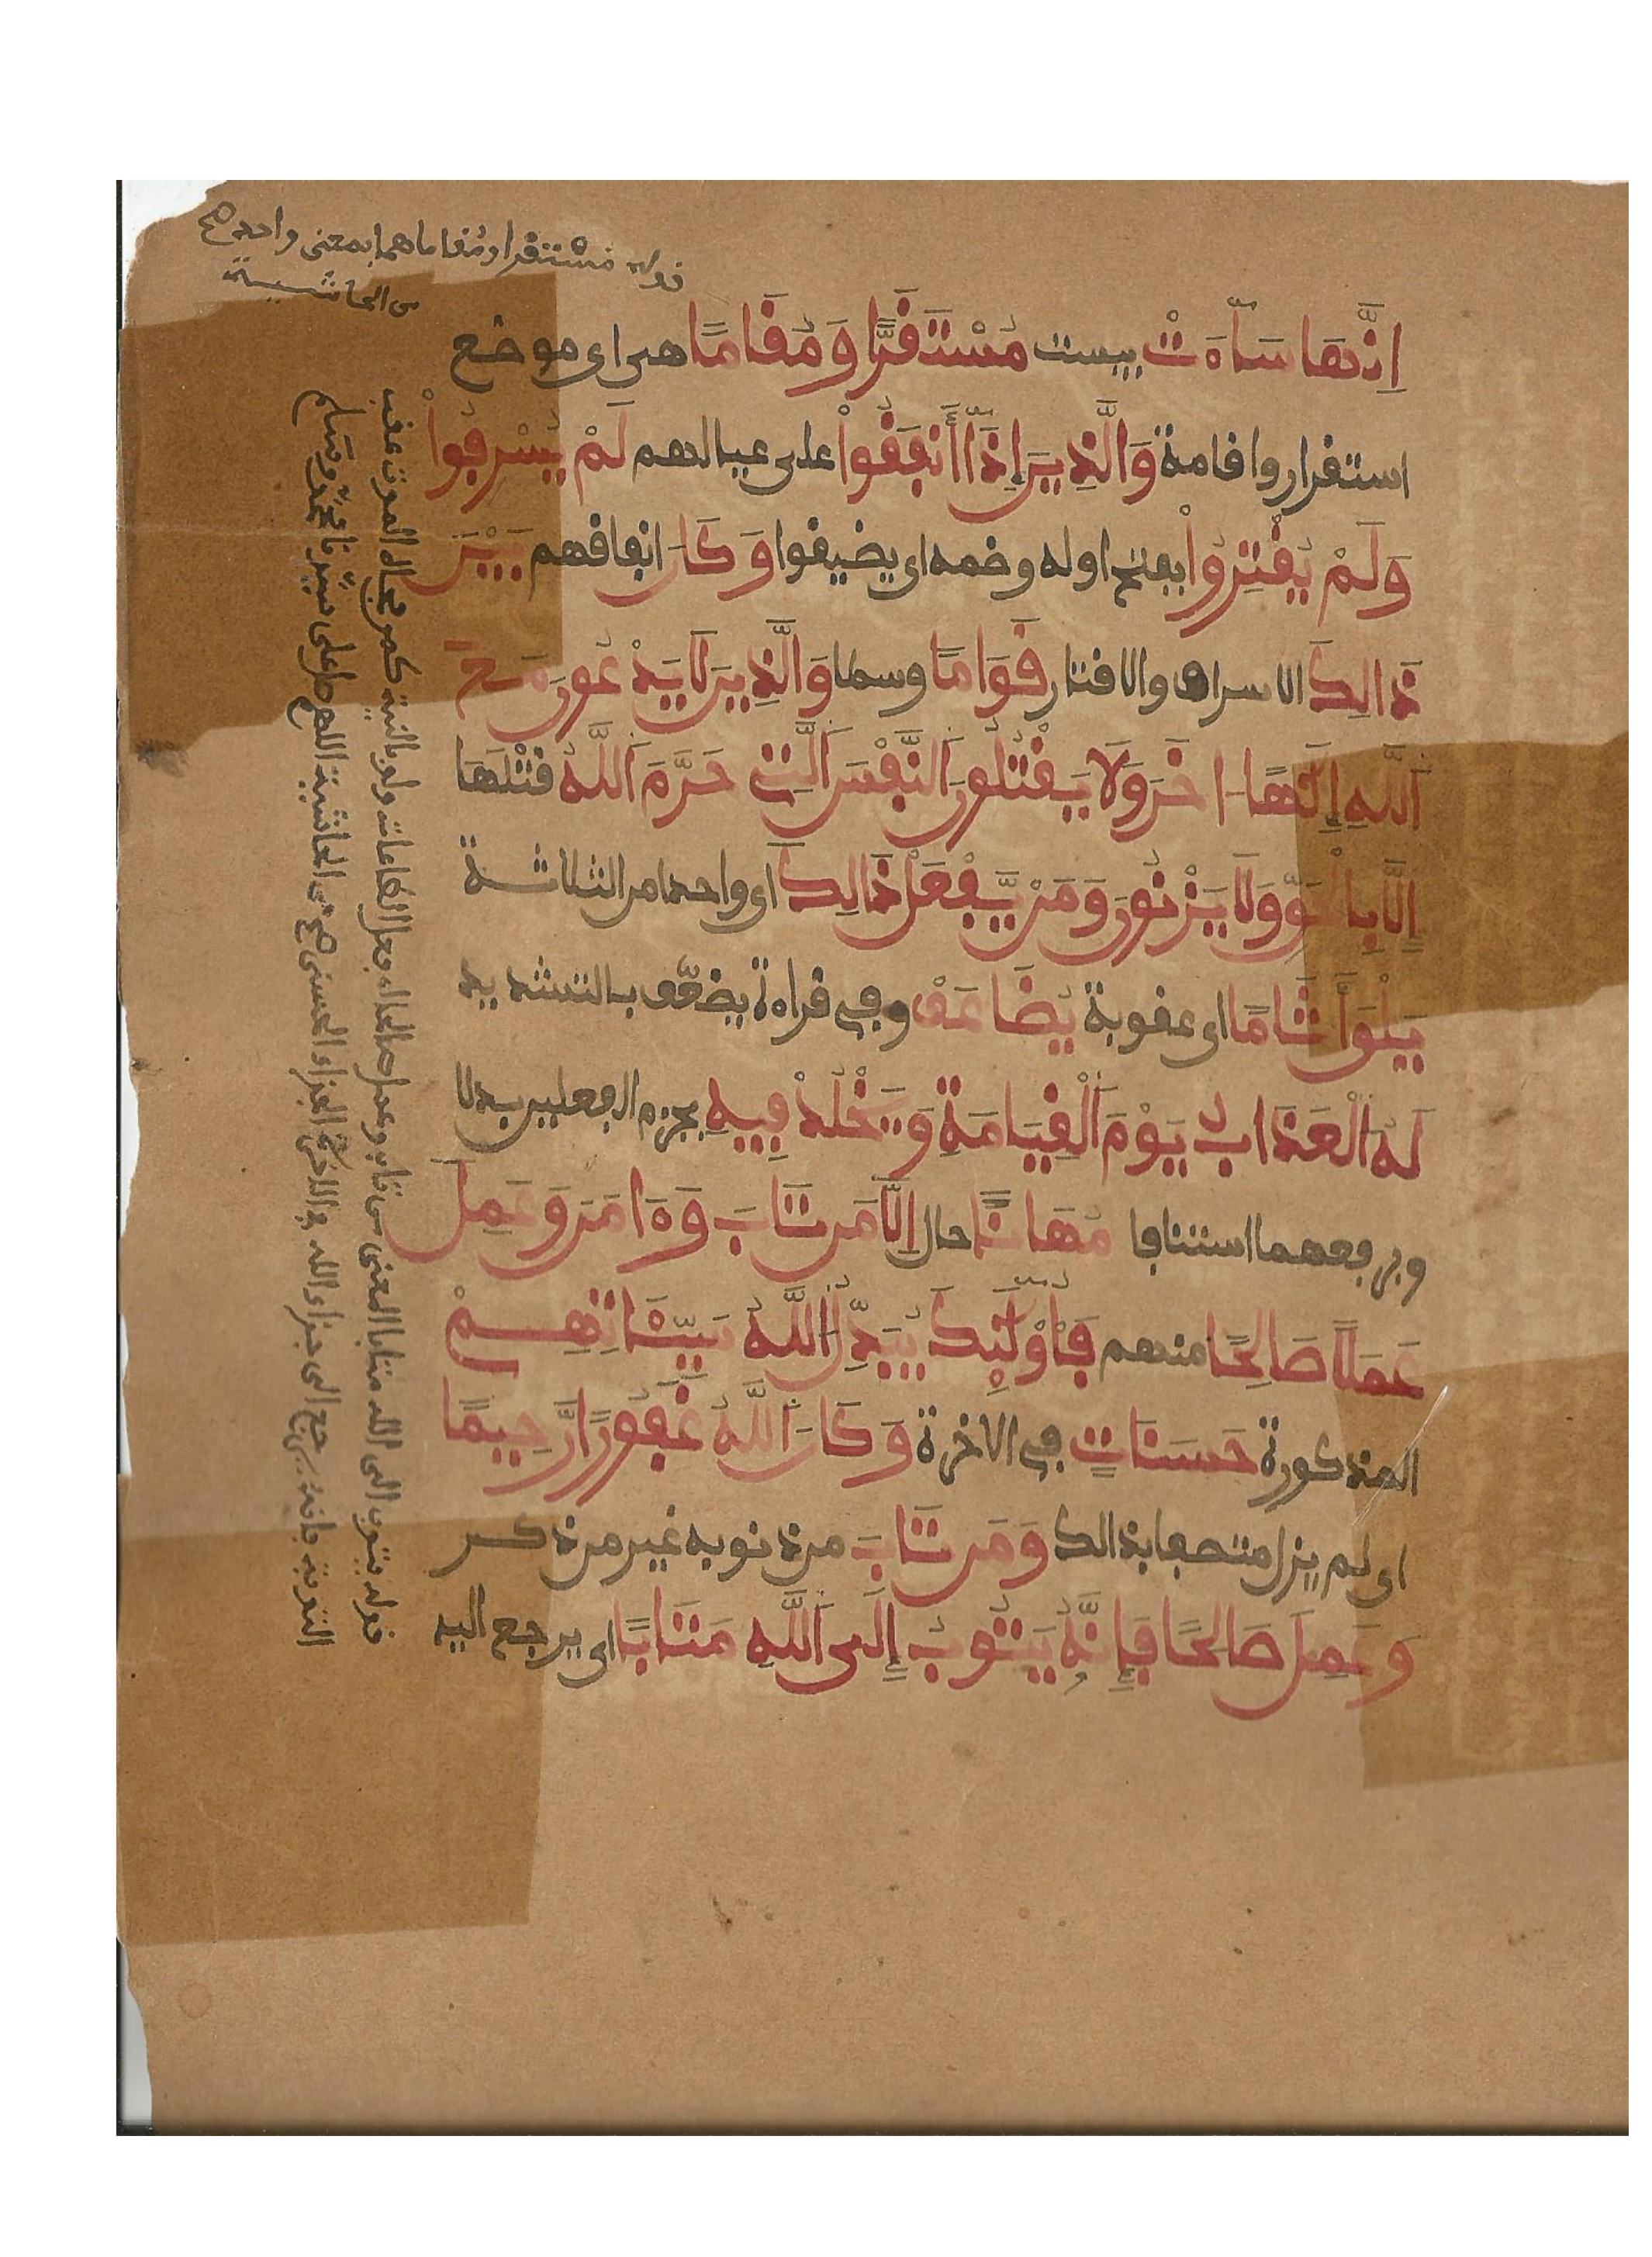 قوله مستقرا ومقاما هما بمعنى واحد صح
من الحاشية
اِنَّهَا سَآءَتْ بيست مُسْتَقَرّٗا وَمُقَامٗا هى اى موضع
استقرار واقامة وَالَّذِينَ إِذَآ أَنفَقُواْ على عيالهم لَمْ يُسْرِفُواْ
وَلَمْ يُقْتِرُواْ بفتح اوله وضمه اى يضيقوا وَكَانَ انفاقهم بَيْنَ
ذَالِكَ الاسراف والاقتار قَوَامٗا وسطا وَالَّذِينَ لَا يَدْعُونَ مَعَ
اَللَّهِ إِلَٰهًا اخَرَ وَلَا يَقْتُلُونَ اَلنَّفْسَ اَلَّتِى حَرَّمَ اَللَّهُ قتْلَهَا
إِلَّا بِالْحَقِّ وَلَا يَزْنُونَ وَمَنْ يَّفْعَلْ ذَالِكَ اى واحدا من الثلاثة
يَلْقَ أَثَامٗا اى عقوبة يُضَاعَفْ وفى قراءة يضعّف بالتشديد
لَهُ اَلْعَذَابُ يَوْمَ اَلْقِيَامَةِ وَيَخْلُدْ فِيهِ بجزم الفعلين بدلا
وبرفعهما استئنافا مُهَانًا حال اِلَّا مَن تَابَ وَءَامَنَ وَعَمِلَ
عَمَلٗا صَالِحٗا منهم فَأُوْلَٰٓئِكَ يُبَدِّلُ اَللَّهُ سَيِّئَاتِهِمْ
المذكورة حَسَنَاتٖ فى الاخرة وَكَانَ اَللَّهُ غَفُورٗا رَّحِيمٗا
اى لم يزل متصفا بذالك وَمَن تَابَ من ذنوبه غير من ذكر
وَعَمِلَ صَالِحٗا فَإِنَّهُۥ يَتُوبُ إِلَى اَللَّهِ مَتَابٗا اى يرجع اليه
قوله يتوب الى الله متابا المعنى من تاب وعمل صالحا فعل الطاعات ولو بالنية كمن فجاه الموت عقب
التوبة فانه يرجع الى جزاء الله فى الاخرة الجزاء الحسن صح من الحاشية اللهم صل على سيدنا محمد وسلم